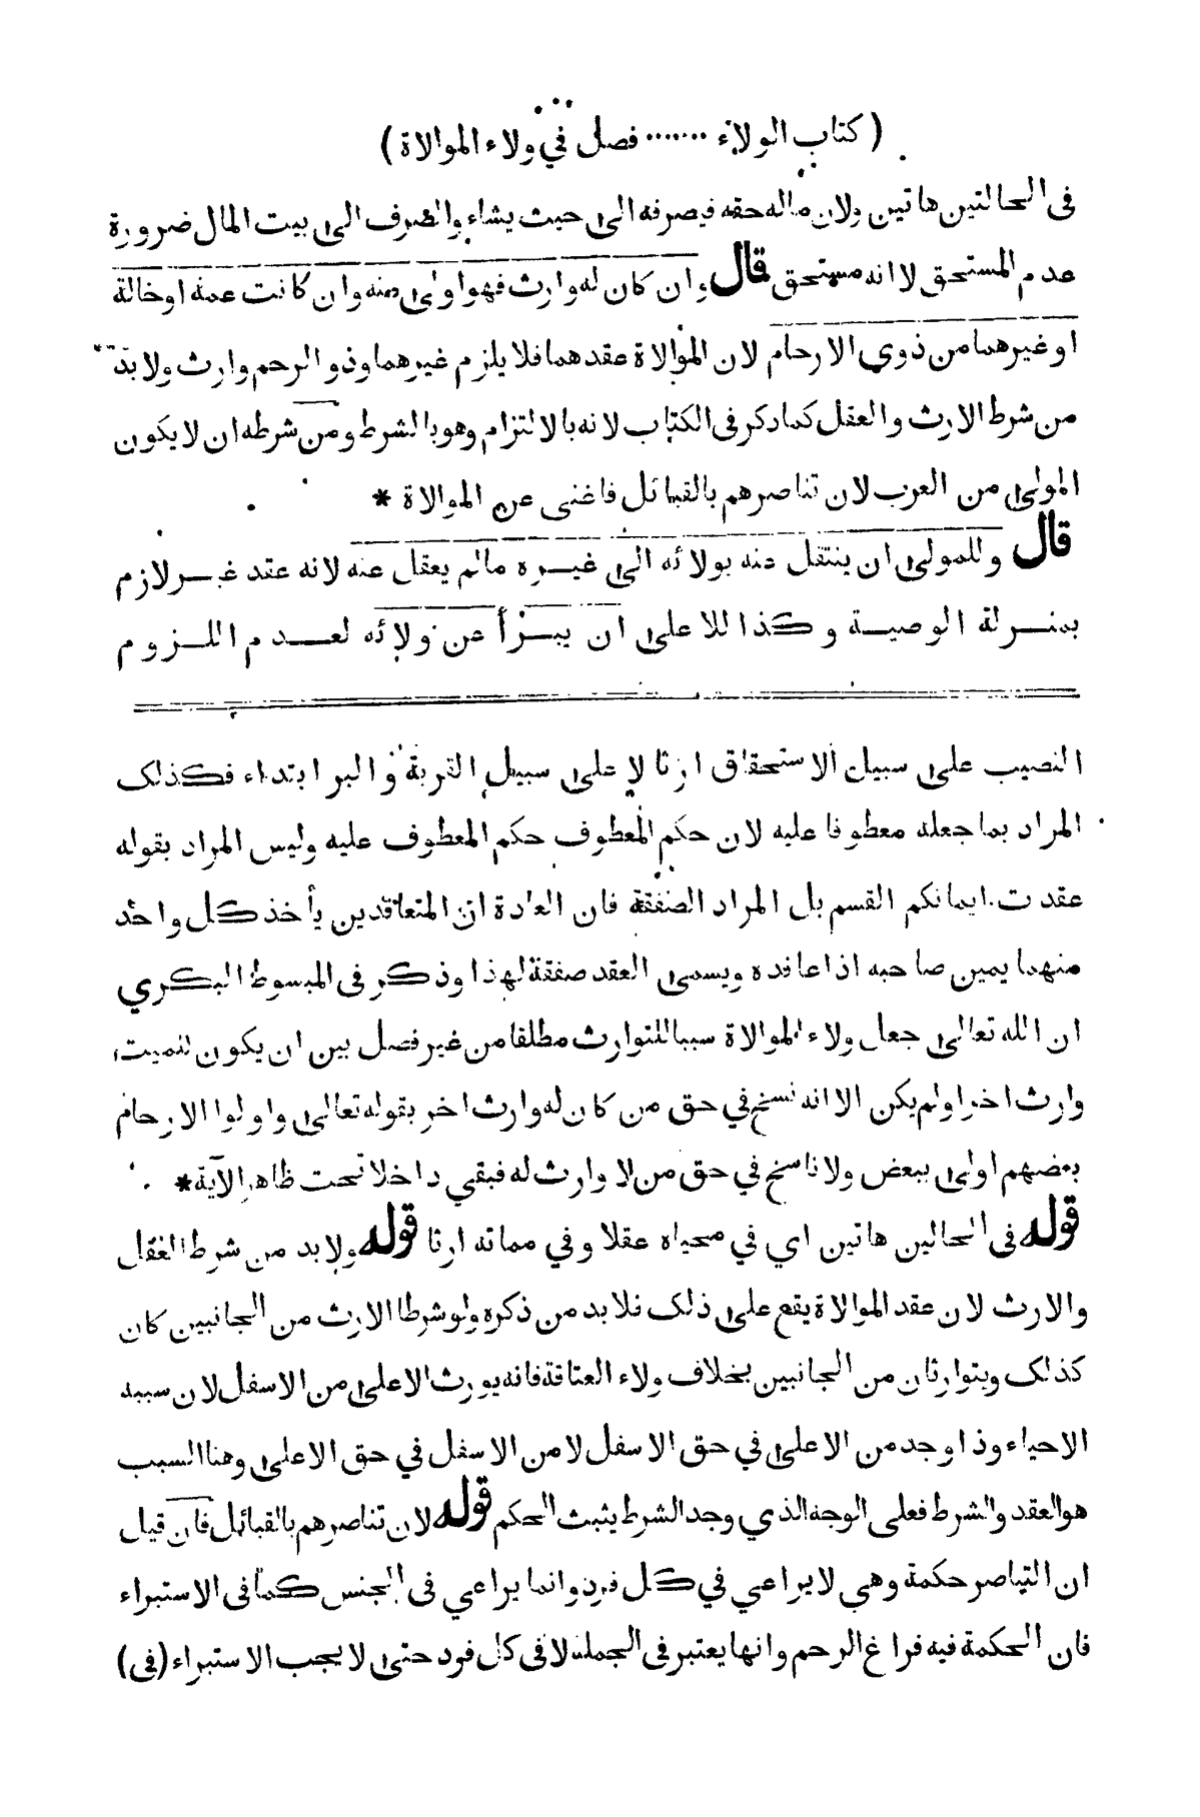 ( كتاب الولاء ······· فصل في ولاء الموالاة )
فى الحالتين هاتين ولان ماله حقه فيصرفه الى حيث يشاء والصرف الى بيت المال ضرورة
عدم المستحق لا انه مستحق قال وان كان له وارث فهو اولى منه وان كانت عمة او خالة
او غيرهما من ذوي الارحام لان الموالاة عقدهما فلا يلزم غيرهما وذو الرحم وارث ولا بد
من شرط الارث والعقل كما ذكر فى الكتاب لانه بالالتزام وهو بالشرط ومن شرطه ان لا يكون
المولى من العرب لان تناصرهم بالقبائل فاغنى عن الموالاة *
قال وللمولى ان ينتقل عنه بولائه الى غيره مالم يعقل عنه لانه عقد غير لازم
بمنزلة الوصية وكذا للاعلى ان يبرأ عن ولائه لعدم اللزوم
النصيب على سبيل الاستحقاق ارثا لا على سبيل القربة والبر ابتداء فكذلك
المراد بما جعله معطوفا عليه لان حكم المعطوف حكم المعطوف عليه وليس المراد بقوله
عقدت ايمانكم القسم بل المراد الصفقة فان العادة ان المتعاقدين يأخذ كل واحد
منهما يمين صاحبه اذا عاقده ويسمى العقد صفقة لهذا وذكر فى المبسوط البكري
ان الله تعالى جعل ولاء الموالاة سببا للتوارث مطلقا من غير فصل بين ان يكون للميت
وارث اخر اولم يكن الا انه نسخ في حق من كان له وارث اخر بقوله تعالى واولوا الارحام
بعضهم اولى ببعض ولا ناسخ في حق من لا وارث له فبقي داخلا تحت ظاهر الآية *
قوله فى الحالين هاتين اي في محياه عقلا وفي مماته ارثا قوله ولا بد من شرط العقل
والارث لان عقد الموالاة يقع على ذلك فلا بد من ذكره ولو شرطا الارث من الجانبين كان
كذلك ويتوارثان من الجانبين بخلاف ولاء العتاقة فانه يورث الاعلى من الاسفل لان سببه
الاحياء وذا وجد من الاعلى في حق الاسفل لا من الاسفل في حق الاعلى وهنا السبب
هو العقد والشرط فعلى الوجه الذي وجد الشرط يثبت الحكم قوله لان تناصرهم بالقبائل فان قيل
ان التناصر حكمة وهي لا يراعي في كل فرد وانما يراعي فى الجنس كما فى الاستبراء
فان الحكمة فيه فراغ الرحم وانها يعتبر فى الجملة لا فى كل فرد حتى لا يجب الاستبراء (فى)